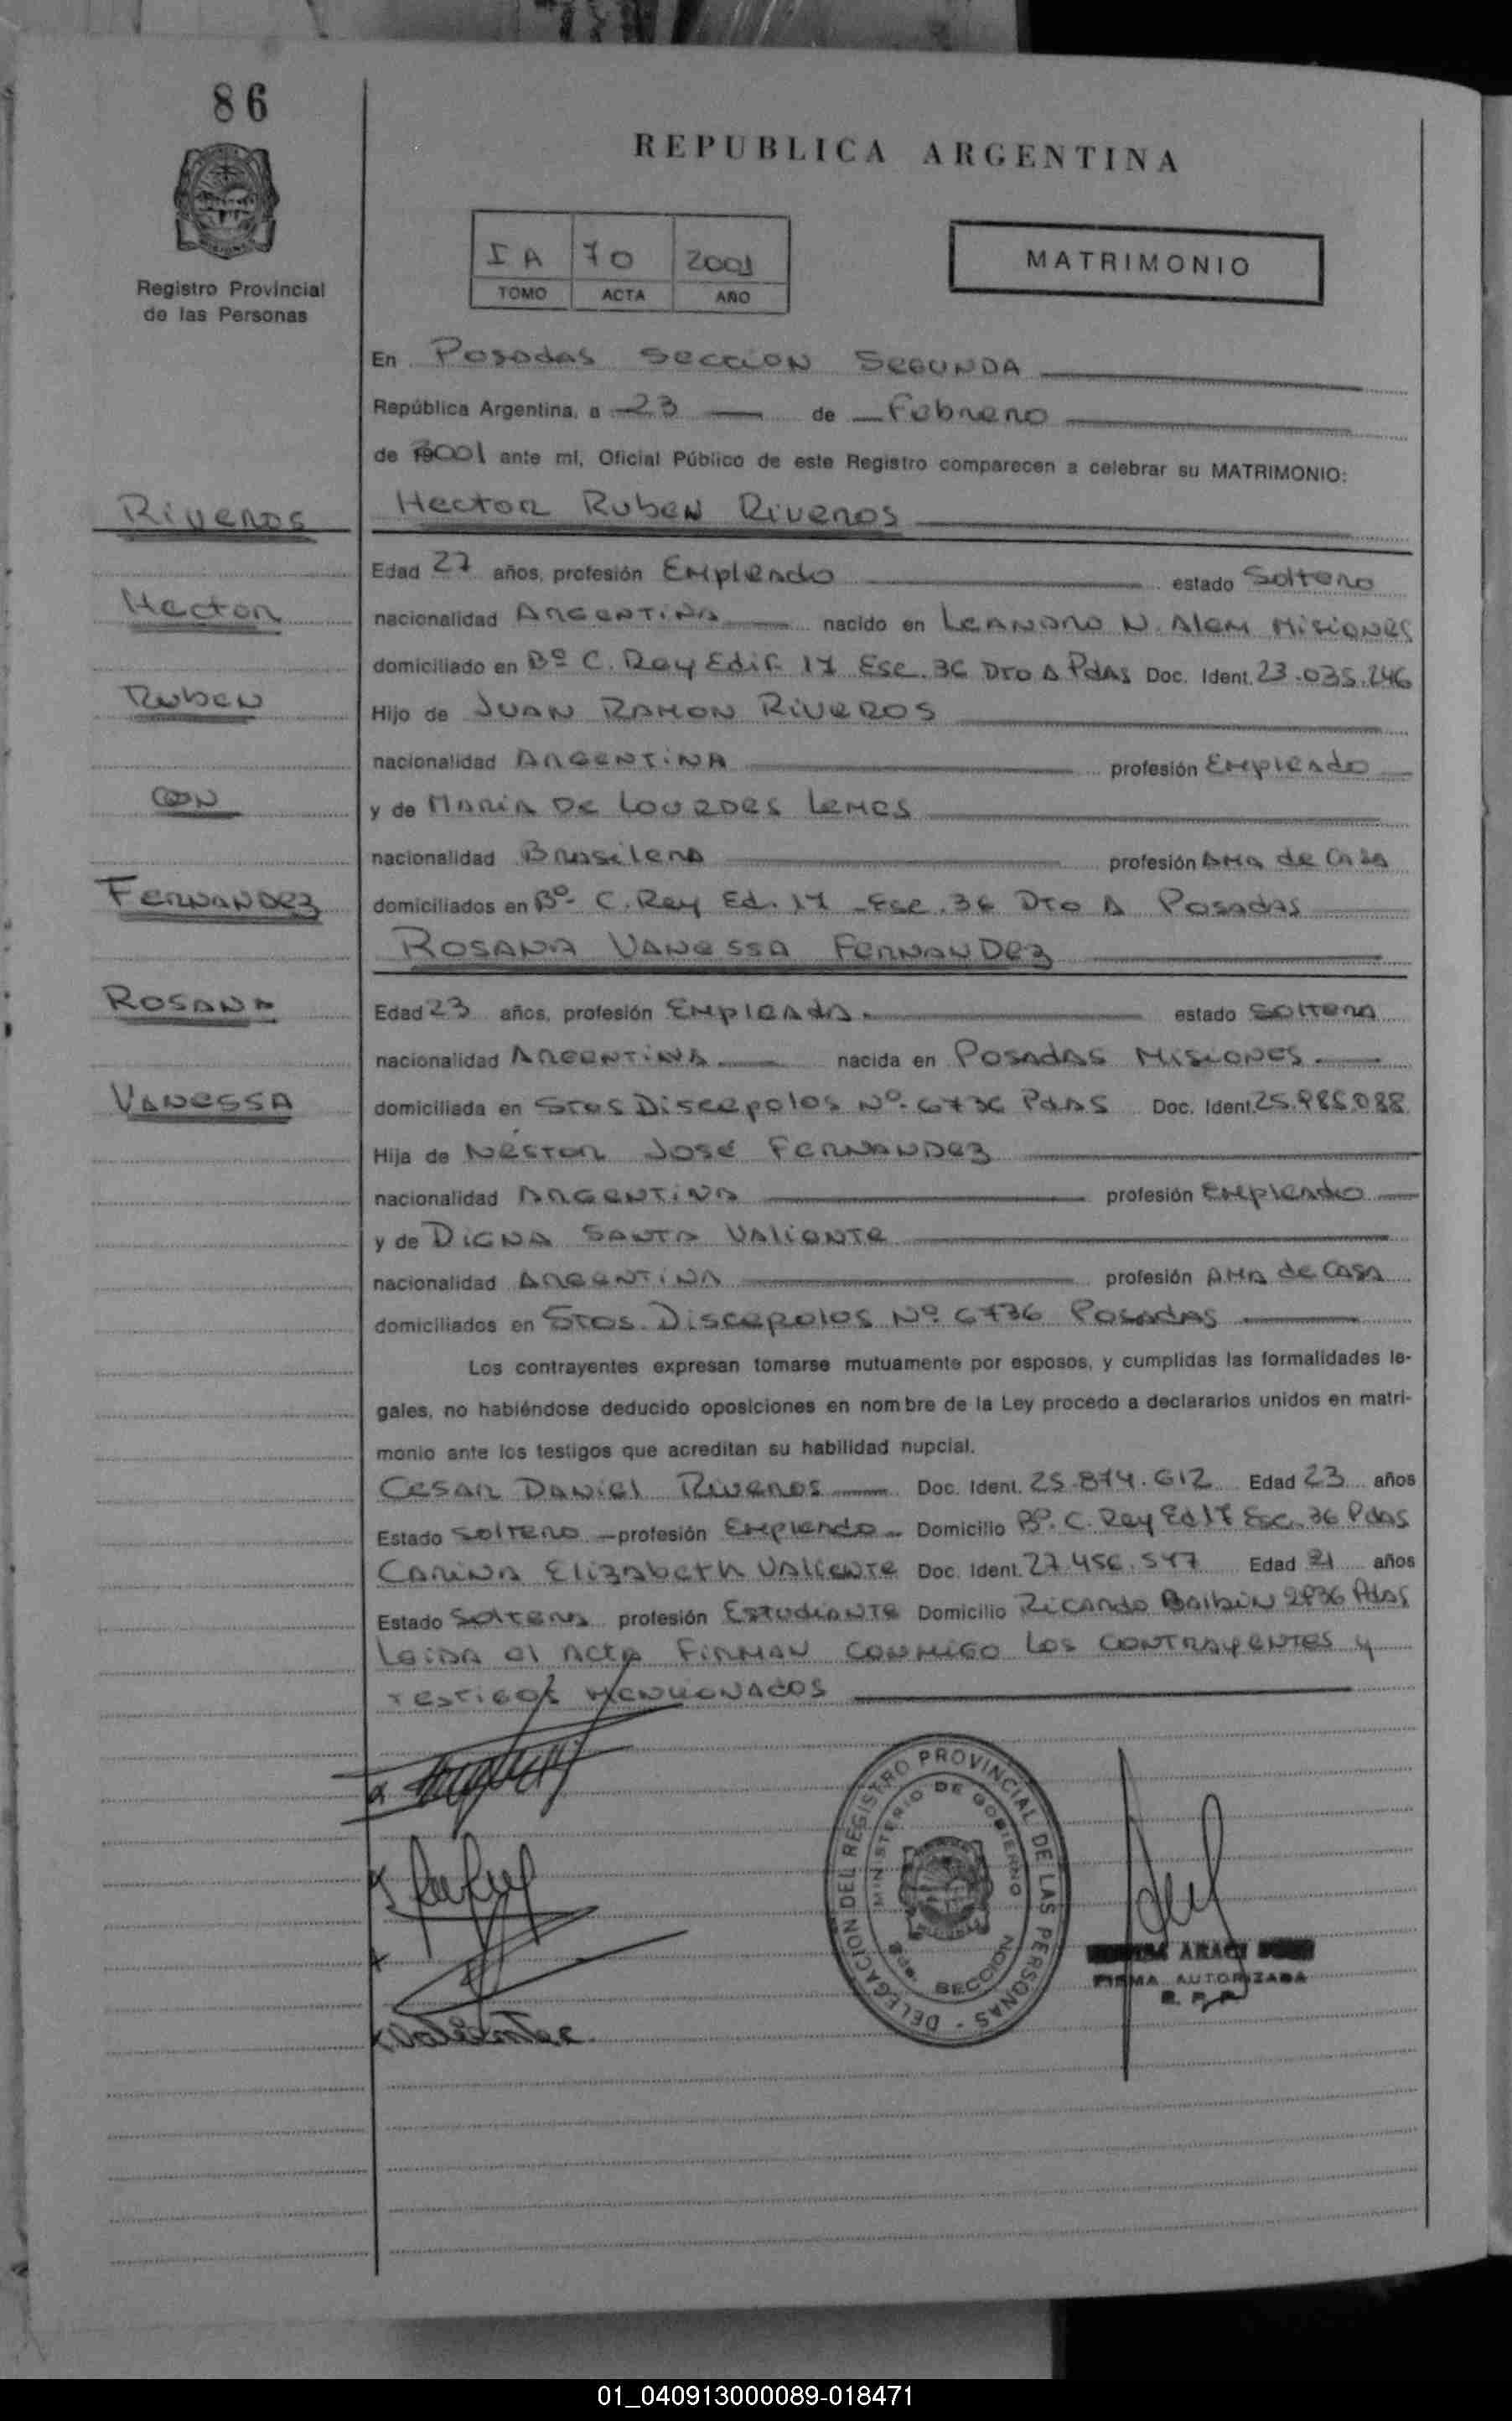 86
REPUBLICA ARGENTINA
Registro Provincial
de las Personas
I A 70 2001
TOMO ACTA AÑO
MATRIMONIO
En Posadas Seccion Segunda
República Argentina, a 23 de Febrero
de 2001 ante mí, Oficial Público de este Registro comparecen a celebrar su MATRIMONIO:
Riveros
Hector Ruben Riveros
Edad 27 años, profesión Empleado estado Soltero
Hector
nacionalidad Argentina nacido en Leandro N. Alem Misiones
domiciliado en Bº C. Rey Edif. 17 Esc. 36 Dto A Pdas Doc. Ident. 23.035.246
Ruben
Hijo de Juan Ramon Riveros
nacionalidad Argentina profesión Empleado
con
y de Maria de Lourdes Lemes
nacionalidad Brasilera profesión Ama de Casa
Fernandez
domiciliados en Bº C. Rey Ed. 17 Esc. 36 Dto A Posadas
Rosana Vanessa Fernandez
Rosana
Edad 23 años, profesión Empleada estado Soltera
nacionalidad Argentina nacida en Posadas Misiones
Vanessa
domiciliada en Stos Discepolos Nº 6736 Pdas Doc. Ident. 25.985.088
Hija de Néstor José Fernandez
nacionalidad Argentina profesión Empleado
y de Digna Santa Valiente
nacionalidad Argentina profesión Ama de Casa
domiciliados en Stos. Discepolos Nº 6736 Posadas
Los contrayentes expresan tomarse mutuamente por esposos, y cumplidas las formalidades le-
gales, no habiéndose deducido oposiciones en nombre de la Ley procedo a declararlos unidos en matri-
monio ante los testigos que acreditan su habilidad nupcial.
Cesar Daniel Riveros Doc. Ident. 25.874.612 Edad 23 años
Estado Soltero profesión Empleado Domicilio Bº. C. Rey Ed 17 Esc. 36 Pdas
Carina Elizabeth Valiente Doc. Ident. 27.456.547 Edad 21 años
Estado Soltera profesión Estudiante Domicilio Ricardo Balbin 2836 Pdas
Leida el acta firman conmigo los contrayentes y
testigos mencionados
DELEGACION DEL REGISTRO PROVINCIAL DE LAS PERSONAS
MINISTERIO DE GOBIERNO
SECCION
FIRMA AUTORIZADA
01_040913000089-018471